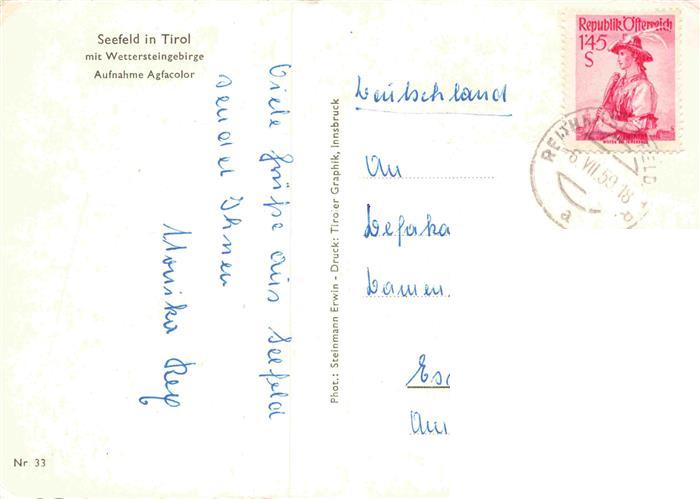 Seefeld in Tirol
mit Wettersteingebirge
Aufnahme Agfacolor
Viele Grüße aus Seefeld
sendet Ihnen
Monika
Phot.: Steinmann Erwin - Druck: Tiroler Graphik, Innsbruck
Republik Österreich
1'45
S
6.VII.59.18
a b
Deutschland
An
Defaka
Damen
Es
Am
Nr. 33